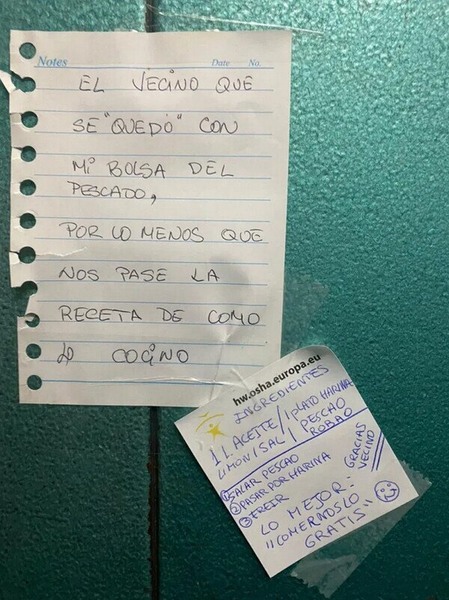 Notes Date No.
EL VECINO QUE
SE "QUEDÓ" CON
Mi BOLSA DEL
PESCADO,
POR LO MENOS QUE
NOS PASE LA
RECETA DE COMO
LO COCINO
hw.osha.europa.eu
INGREDIENTES
1 L. ACEITE / 1 PLATO HARINA
LIMON / SAL / PESCAO
ROBAO
① SACAR PESCAO
② PASAR POR HARINA
③ FREIR
GRACIAS
VECINO
LO MEJOR:
"COMERNOSLO
GRATIS"